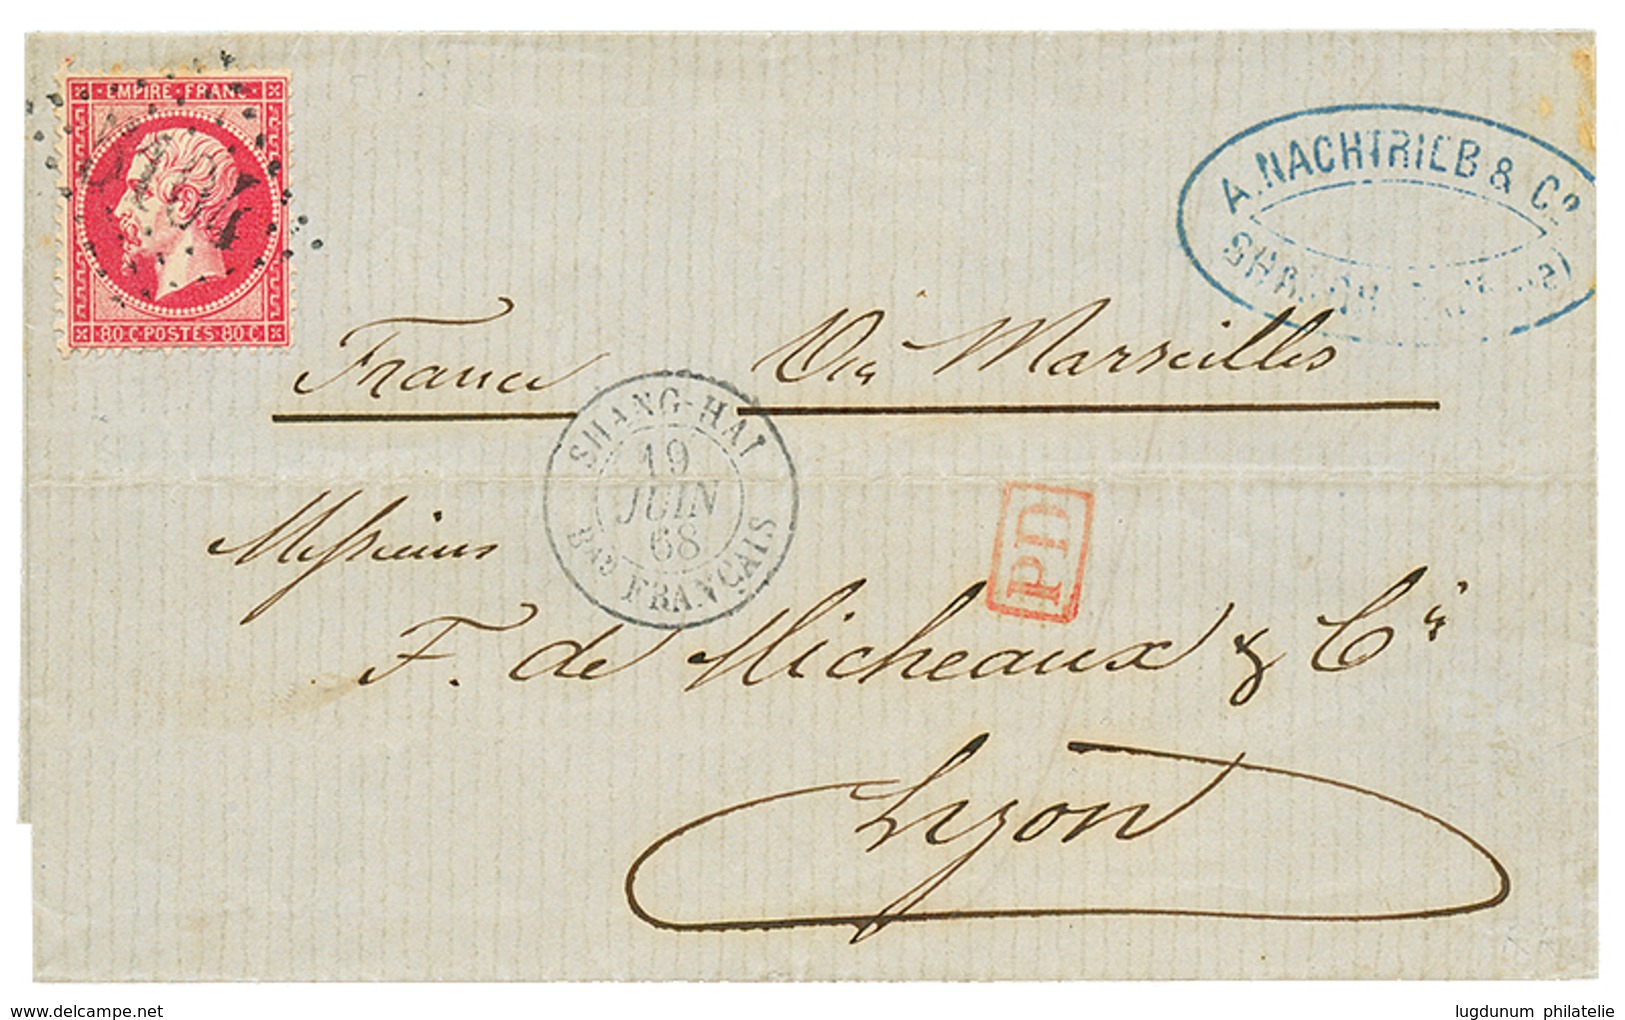 EMPIRE · FRANC
80 C · POSTES · 80 C
A. NACHTRIEB & Co
France Via Marseilles
SHANG-HAI
19
JUIN
68
Bau FRANÇAIS
PD
Messieurs
F. de Micheaux & Cie
Lyon
delcampe.net
lugdunum philatelie